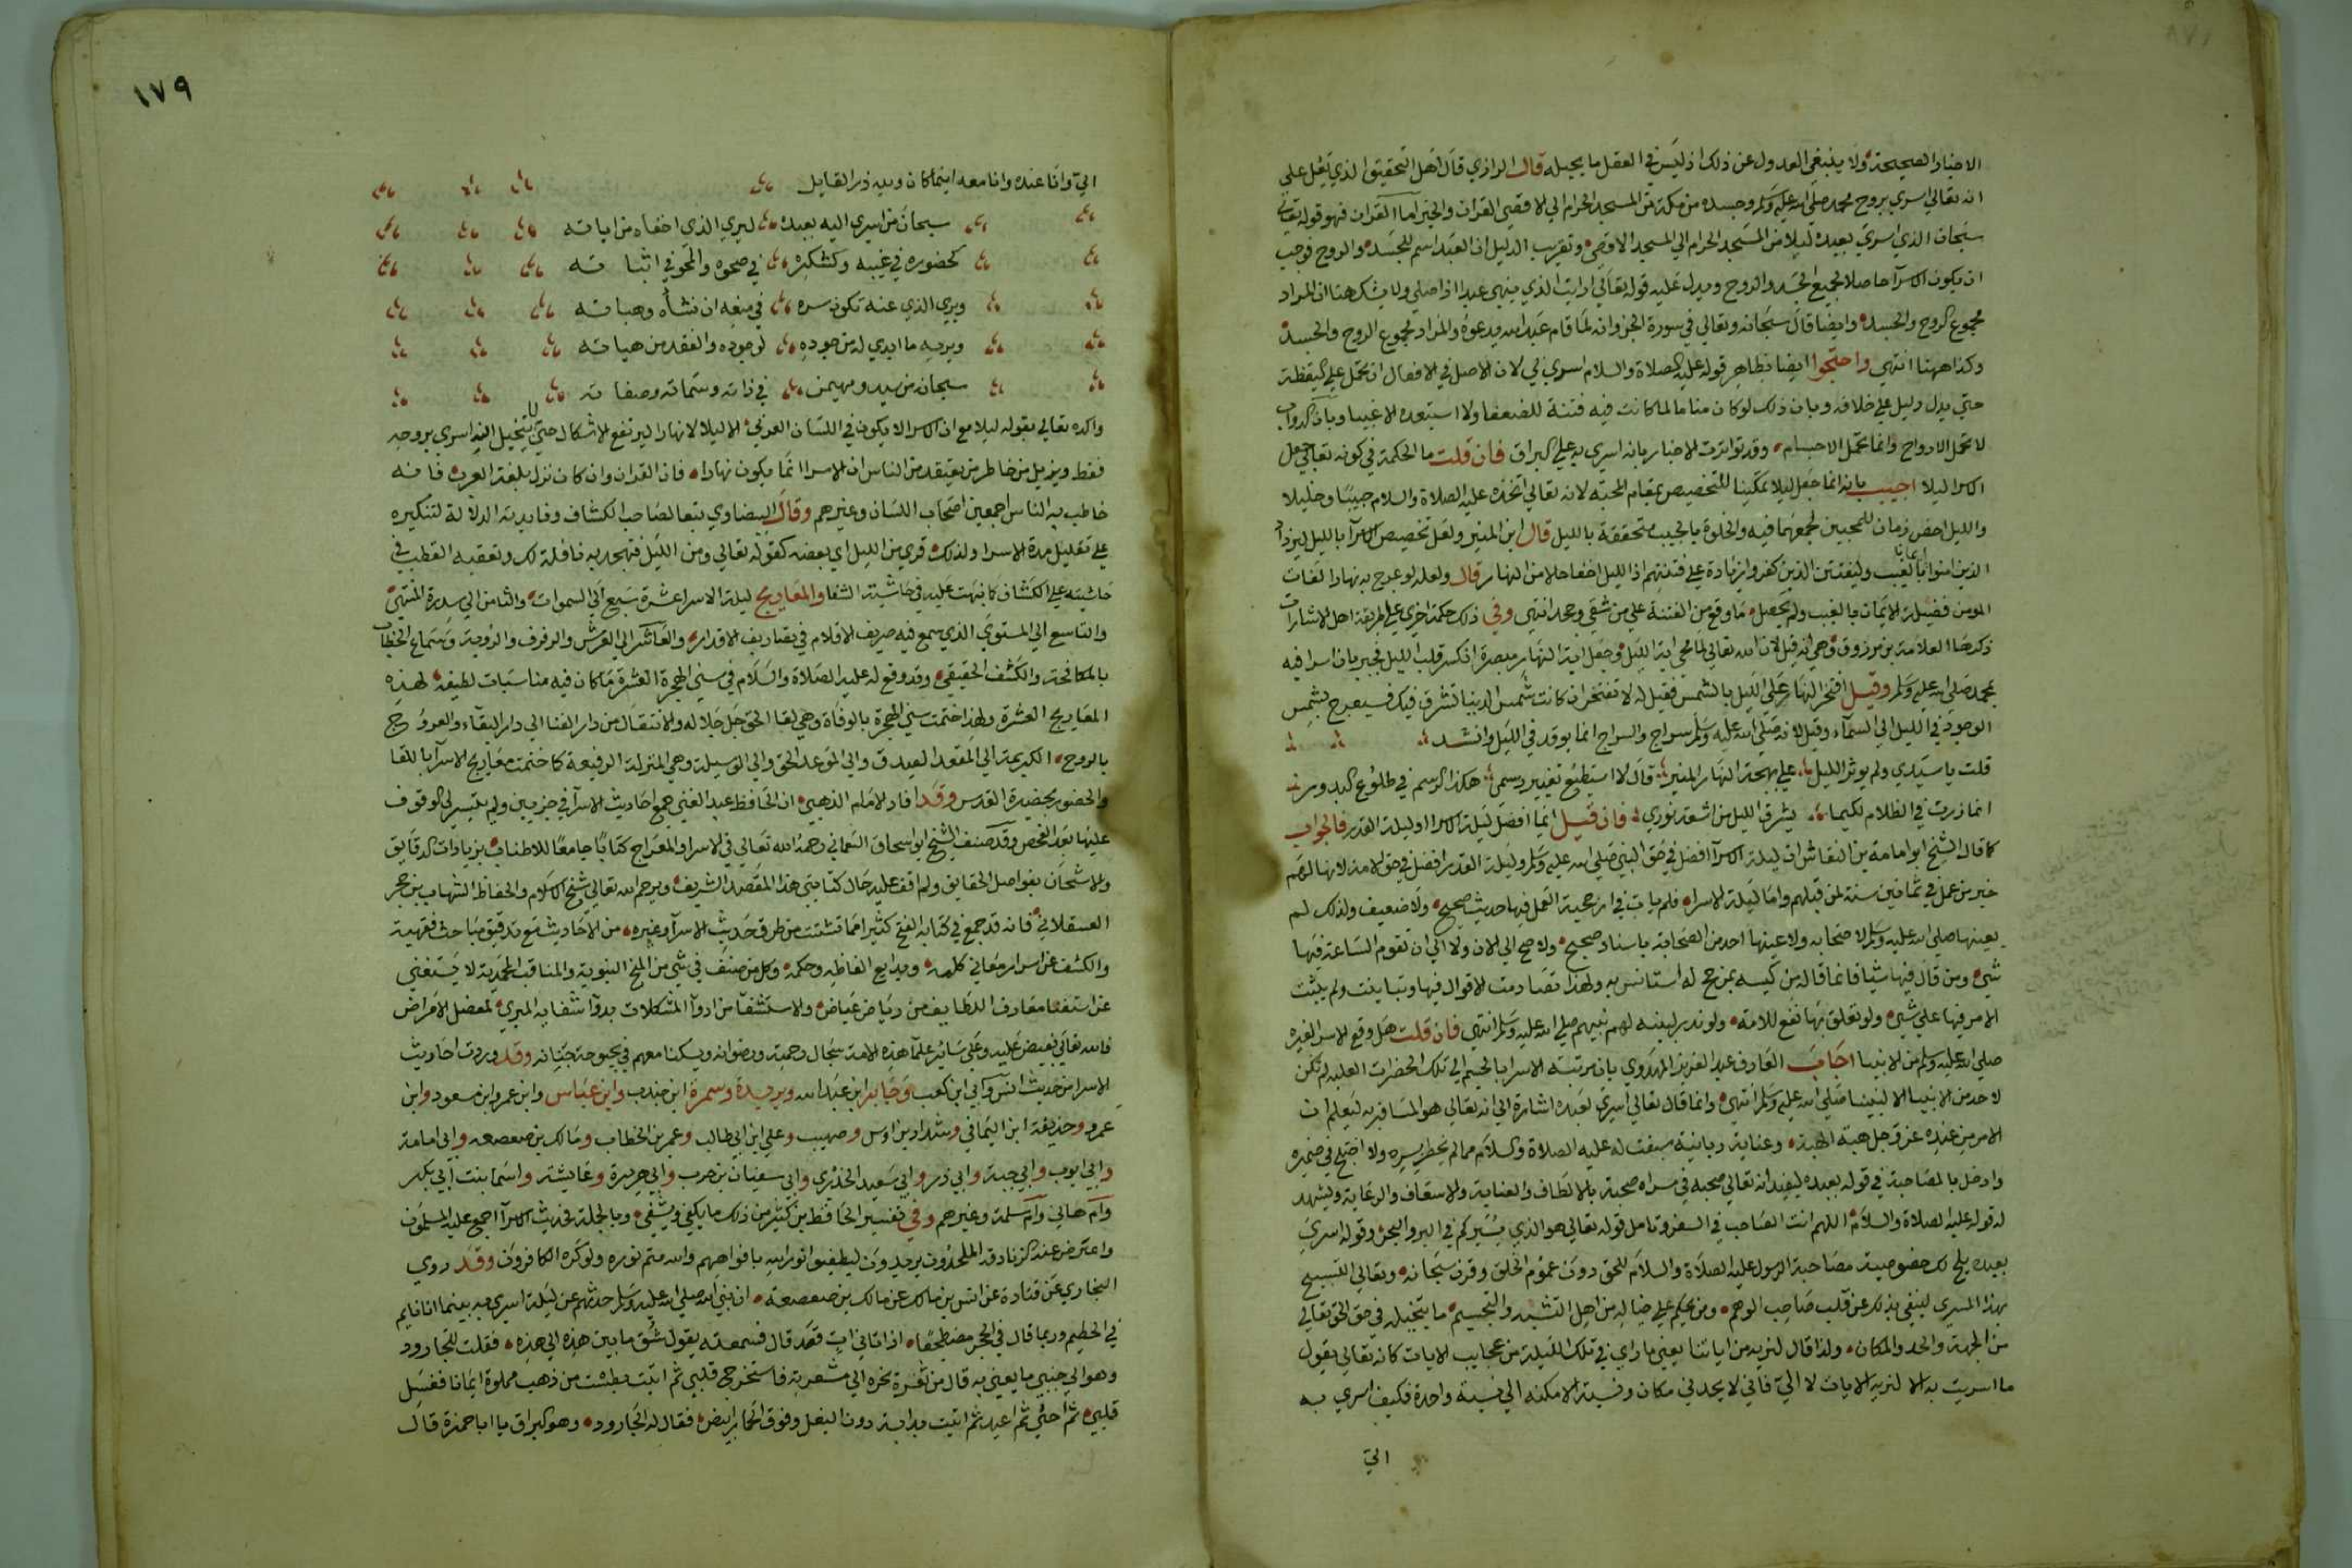 الاخبار الصحيحة ولا ينبغي العدول عن ذلك اذ ليس في العقل ما يحيله قال الرازي قال اهل التحقيق الذي يدل على
انه تعالى اسري بروح محمد صلى الله عليه وسلم وجسده من مكة من المسجد الحرام الي الاقصى القران والخبر اما القران فهو قوله تعالى
سبحان الذي اسري بعبده ليلا من المسجد الحرام الي المسجد الاقصى وتقريب الدليل ان العبد اسم للجسد والروح فوجب
ان يكون الاسرآ حاصلا لجميع الجسد والروح ويدل عليه قوله تعالى ارايت الذي ينهى عبدا اذا صلي ولا شك هنا ان المراد
مجموع الروح والجسد وايضا قال سبحانه وتعالى في سورة الجن وانه لما قام عبد الله يدعوه والمراد مجموع الروح والجسد
وكذا ههنا انتهى واحتجوا ايضا بظاهر قوله عليه الصلاة والسلام اسري بي لان الاصل في الافعال ان تحمل علي اليقظة
حتي يدل دليل علي خلافه وبان ذلك لو كان مناما لما كانت فيه فتنة للضعفا ولا استبعده الاغبيا وبان الدواب
لا تحمل الارواح وانما تحمل الاجسام وقد تواترت الاخبار بانه اسري به علي البراق فان قلت ما الحكمة في كونه تعالى جعل
الاسرا ليلا اجيب بانه انما جعل ليلا تمكينا للتخصيص بمقام المحبة لانه تعالى اتخذه عليه الصلاة والسلام حبيبا وخليلا
والليل اخص زمان للمحبين لجمعهما فيه والخلوة بالحبيب متحققة بالليل قال ابن المنير ولعل تخصيص الاسرآ بالليل ليزداد
الذين امنوا ايمانا بالغيب وليفتتن الذين كفروا زيادة علي فتنتهم اذ الليل اخفا حالا من النهار قال ولعله لو عرج به نهارا لفات
المومن فضيلة الايمان بالغيب ولم يحصل ما وقع من الفتنة علي من شقي وجحد انتهى وفي ذلك حكمة اخري علي طريقة اهل الاشارات
ذكرها العلامة بن مرزوق وهي انه قيل لان الله تعالى لما محي اية الليل وجعل اية النهار مبصرة انكسر قلب الليل فجبر بان اسرا فيه
بمحمد صلى الله عليه وسلم وقيل افتخر النهار على الليل بالشمس فقيل له لا تفتخر ان كانت شمس الدنيا تشرق فيك فسيعرج بشمس
الوجود في الليل الي السمآء وقيل لانه صلى الله عليه وسلم سراج والسراج انما يوقد في الليل وانشد
قلت يا سيدي ولم يوثر الليل علي بهجة النهار المنير قال لا استطيع تغيير رسمي هكذا الرسم في طلوع البدور
انما زرت في الظلام لكيما يشرق الليل من اشعة نوري فان قيل ايما افضل ليلة الاسرا او ليلة القدر فالجواب
كما قال الشيخ ابو امامة بن النقاش ان ليلة الاسرآ افضل في حق النبي صلى الله عليه وسلم وليلة القدر افضل في حق الامة لانها لهم
خير من عمل في ثمانين سنة لمن قبلهم واما ليلة الاسراء فلم يات في ارجحية العمل فيها حديث صحيح ولا ضعيف ولذلك لم
يعينها صلى الله عليه وسلم لاصحابه ولا عينها احد من الصحابة باسناد صحيح ولا صح الي الان ولا الي ان تقوم الساعة فيها
شي ومن قال فيها شيئا فانما قاله من كيسه بمرجح له استانس به ولهذا تصادمت الاقوال فيها وتباينت ولم يثبت
الامر فيها علي شي ولو تعلق بها نفع للامة ولو بذرة لبينه لهم نبيهم صلى الله عليه وسلم انتهى فان قلت هل وقع الاسرا لغيره
صلى الله عليه وسلم من الانبيا اجاب العارف عبد العزيز المهدوي بان مرتبة الاسرا بالجسم الي تلك الحضرات العلية لم تكن
لاحد من الانبيا الا لنبينا صلى الله عليه وسلم انتهى وانما قال تعالى اسري بعبده اشارة الي انه تعالى هو المسافر به ليعلم ان
الامر من عنده عز وجل هبة الهية وعناية ربانية سبقت له عليه الصلاة والسلام مما لم يخطر بسره ولا اختلج في ضميره
وادخل بالمصاحبة في قوله بعبده ليفيد انه تعالى صحبه في مسراه صحبة بالالطاف والعناية والاسعاف والرعاية ويشهد
له قوله عليه الصلاة والسلام اللهم انت الصاحب في السفر وتامل قوله تعالى هو الذي يسيركم في البر والبحر وقوله اسري
بعبده يلح لك خصوصية مصاحبة الرسول عليه الصلاة والسلام للحق دون عموم الخلق وقرن سبحانه وتعالى التسبيح
بهذا المسري لينفي بذلك عن قلب صاحب الوهم ومن يحكم علي خياله من اهل التشبيه والتجسيم ما يتخيله في حق الحق تعالى
من الجهة والحد والمكان ولذا قال لنريه من اياتنا يعني ما راي في تلك الليلة من عجايب الايات كانه تعالى يقول
ما اسريت به الا لنريه الايات لا الي فاني لا يحدني مكان ونسبة الامكنه الي نسبة واحدة فكيف اسري به
الي
١٧٩
الي وانا عنده وانا معه اينما كان ولله در القايل
سبحان من اسري اليه بعبده ليري الذي اخفاه من اياته
كحضوره في غيبه وكشكره في صحوه والمحو في اثباته
ويري الذي عنه تكون سره في منعه ان شاه وهباته
ويريه ما ابدي له من جوده لوجوده والفقد من هياته
سبحانه من سيد ومهيمن في ذاته وسماته وصفاته
واكده تعالى بقوله ليلا مع ان الاسرا لا يكون في اللسان العربي الا ليلا لا نهارا ليرتفع الاشكال حتي لا يتخيل انه اسري بروحه
فقط ويزيل من خاطر من يعتقد من الناس ان الاسرا انما يكون نهارا فان القران وان كان نزل بلغة العرب فانه
خاطب به الناس اجمعين اصحاب اللسان وغيرهم وقال البيضاوي تبعا لصاحب الكشاف وفايدته الدلالة لتنكيره
علي تقليل مدة الاسرا ولذلك قري من الليل اي بعضه كقوله تعالى ومن الليل فتهجد به نافلة لك وتعقبه القطب في
حاشيته علي الكشاف كما نبهت عليه في حاشية الشفا والمعاريج ليلة الاسرا عشرة سبع الي السموات والثامن الي سدرة المنتهى
والتاسع الي المستوي الذي سمع فيه صريف الاقلام في تصاريف الاقدار والعاشر الي العرش والرفرف والروية وسماع الخطاب
بالمكافحة والكشف الحقيقي وقد وقع له عليه الصلاة والسلام في سني الهجرة العشرة ما كان فيه مناسبات لطيفة لهذه
المعاريج العشرة ولهذا ختمت سني الهجرة بالوفاة وهي لقا الحق جل جلاله والانتقال من دار الفنا الي دار البقاء والعروج
بالروح الكريمة الي المقعد الصدق والي الموعد الحق والي الوسيلة وهي المنزلة الرفيعة كما ختمت معاريج الاسرآ باللقا
والحضور بحضيرة القدس وقد افاد الامام الذهبي ان الحافظ عبد الغني جمع احاديث الاسرآ في جزيين ولم يتيسر لي الوقوف
عليها بعد الفحص وقد صنف الشيخ ابو اسحاق النعماني رحمه الله تعالى في الاسرا والمعراج كتابا جامعا للاطناب بزيادات الدقايق
والاشحان بفواصل الحقايق ولم اقف عليه حال كتابتي هذا المقصد الشريف ويرحم الله تعالى شيخ الاسلام والحفاظ الشهاب بن حجر
العسقلاني فانه قد جمع في كتابه الفتح كثيرا مما تشتت من طرق حديث الاسرآ وغيره من الاحاديث مع تدقيق مباحث فقهية
والكشف عن اسرار معاني كلمه وبدايع الفاظه وحكمه وكل من صنف في شي من المنح النبوية والمناقب المحمدية لا يستغني
عن استفنا معارف اللطايف من رياض عياض والاستشفا من ادوآ المشكلات بدوآ شفايه المبري لمعضل الامراض
فالله تعالى يفيض عليه وعلى ساير علمآ هذه الامة سجال رحمته ورضوانه ويسكننا معهم في بحبوحة جنانه وقد وردت احاديث
الاسرا من حديث انس وابي ابن كعب وجابر ابن عبد الله وبريدة وسمرة ابن جندب وابن عباس وابن عمر وابن مسعود وابن
عمرو وحذيفة ابن اليماني وشداد بن اوس وصهيب وعلي ابن ابي طالب وعمر بن الخطاب ومالك بن صعصعه وابي امامة
وابي ايوب وابي حبة وابي ذر وابي سعيد الخذري وابي سفيان بن حرب وابي هريرة وعايشة واسما بنت ابي بكر
وام هاني وام سلمة وغيرهم وفي تفسير الحافظ بن كثير من ذلك ما يكفي ويشفي وبالجملة فحديث الاسرآ اجمع عليه المسلمون
واعترض عنه الزنادقه الملحدون يريدون ليطفيوا نور الله بافواههم والله متم نوره ولو كره الكافرون وقد روي
البخاري عن قتادة عن انس بن مالك عن مالك بن صعصعة ان نبي الله صلى الله عليه وسلم حدثهم عن ليلة اسري به بينما انا نايم
في الحطيم وربما قال في الحجر مضطجعا اذ اتاني ات فقد قال فسمعته يقول شق ما بين هذه الي هذه فقلت للجارود
وهو الي جنبي ما يعني به قال من ثغرة نحره الي شعرته فاستخرج قلبي ثم اتيت بطشت من ذهب مملوة ايمانا فغسل
قلبي ثم احشي ثم اعيد ثم اتيت بدابة دون البغل وفوق الحمار ابيض فقال له الجارود وهو البراق يا ابا حمزة قال